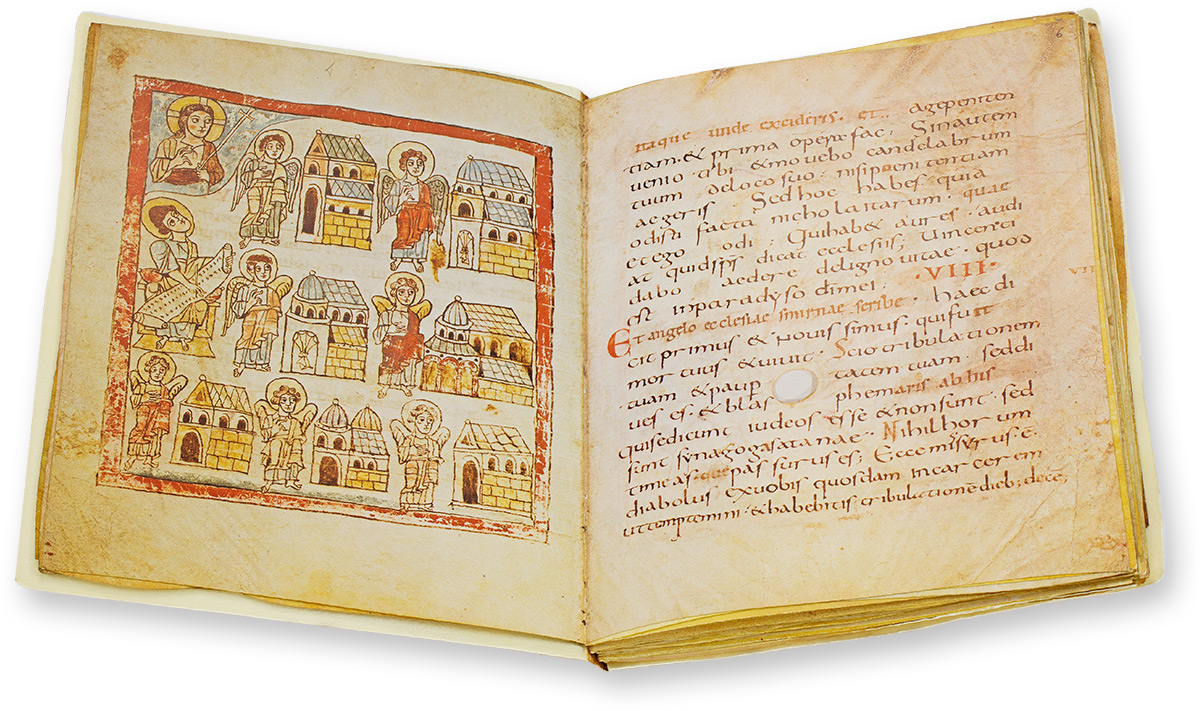 6
itaque unde excideris · et · age peniten
tiam · & prima opera fac ; Sin autem
uenio tibi & mouebo candelabrum
tuum de loco suo · nisi penitentiam
aegeris · Sed hoc habes · quia
odisti facta nicholaitarum · quae
et ego odi ; Qui hab& aures · audi
at quid sps dicat ecclesiis ; Uincenti
dabo aedere de ligno uitae · quod
est in paradyso di mei · VIII ·
Et angelo ecclesiae smirnae scribe · haec di
cit primus & nouissimus · qui fuit
mortuus & uiuit · Scio tribulationem
tuam & paup tatem tuam · sed di
ues es · & blas phemaris ab his
qui se dicunt iudeos esse & non sunt · sed
sunt synagoga satanae · Nihil horum
timeas que passurus es ; Ecce misurus · e ·
diabolus ex uobis quosdam in carcerem
ut temptemini · & habebitis tribulatione dieb ; dece ;